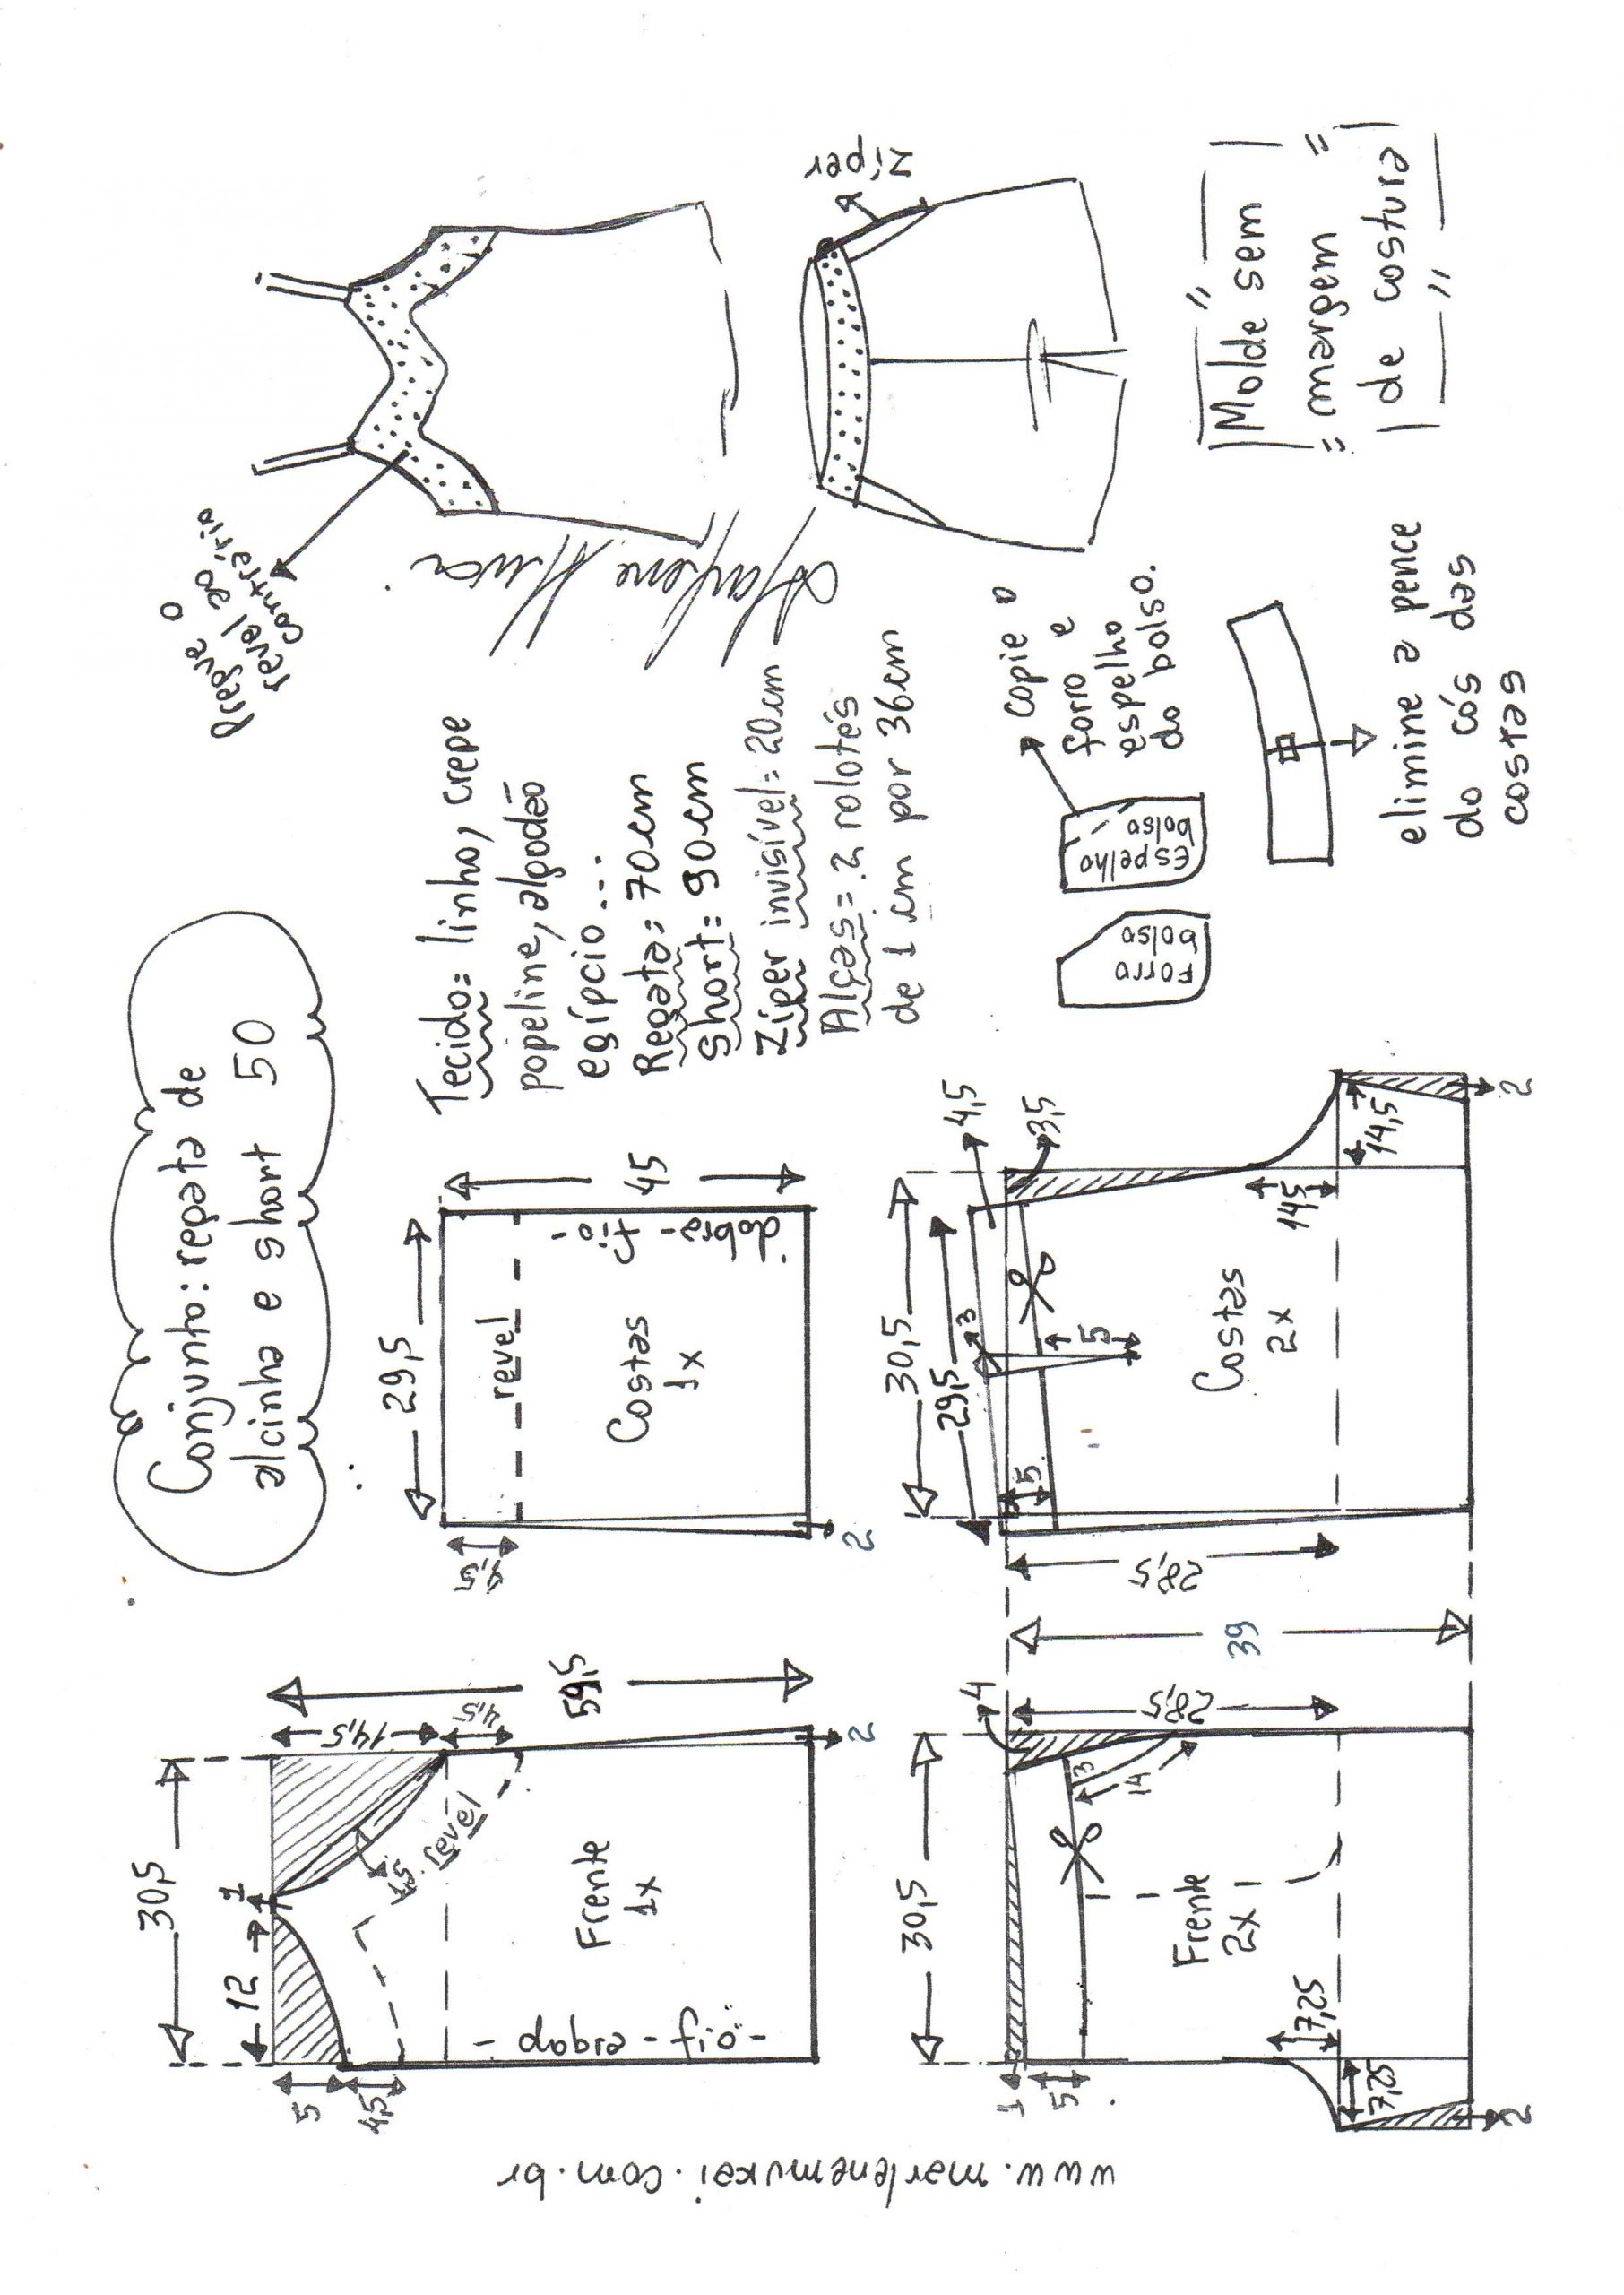 Conjunto: regata de
alcinha e short 50
Pregue o
revel ao
contrário
Tecido: linho, crepe
popeline, algodão
egípcio...
Regata: 70cm
Short: 90cm
Zíper invisível: 20cm
Alças= 2 rolotês
de 1 cm por 36cm
Marlene Mukai
zíper
30,5
12
1
5
4,5
14,5
4,5
59,5
1,5
revel
Frente
1x
- dobra - fio -
2
29,5
45
4,5
revel
Costas
1x
dobra-
- fio -
2
30,5
4
1
5
3
14
28,5
39
Frente
2x
7,25
7,25
2
30,5
29,5
4,5
3,5
3
5
5
28,5
Costas
2x
14,5
14,5
2
Forro
bolso
Espelho
bolso
copie o
forro e
espelho
do bolso.
elimine a pence
do cós das
costas
Molde sem
margem
de costura
www.marlenemukai.com.br